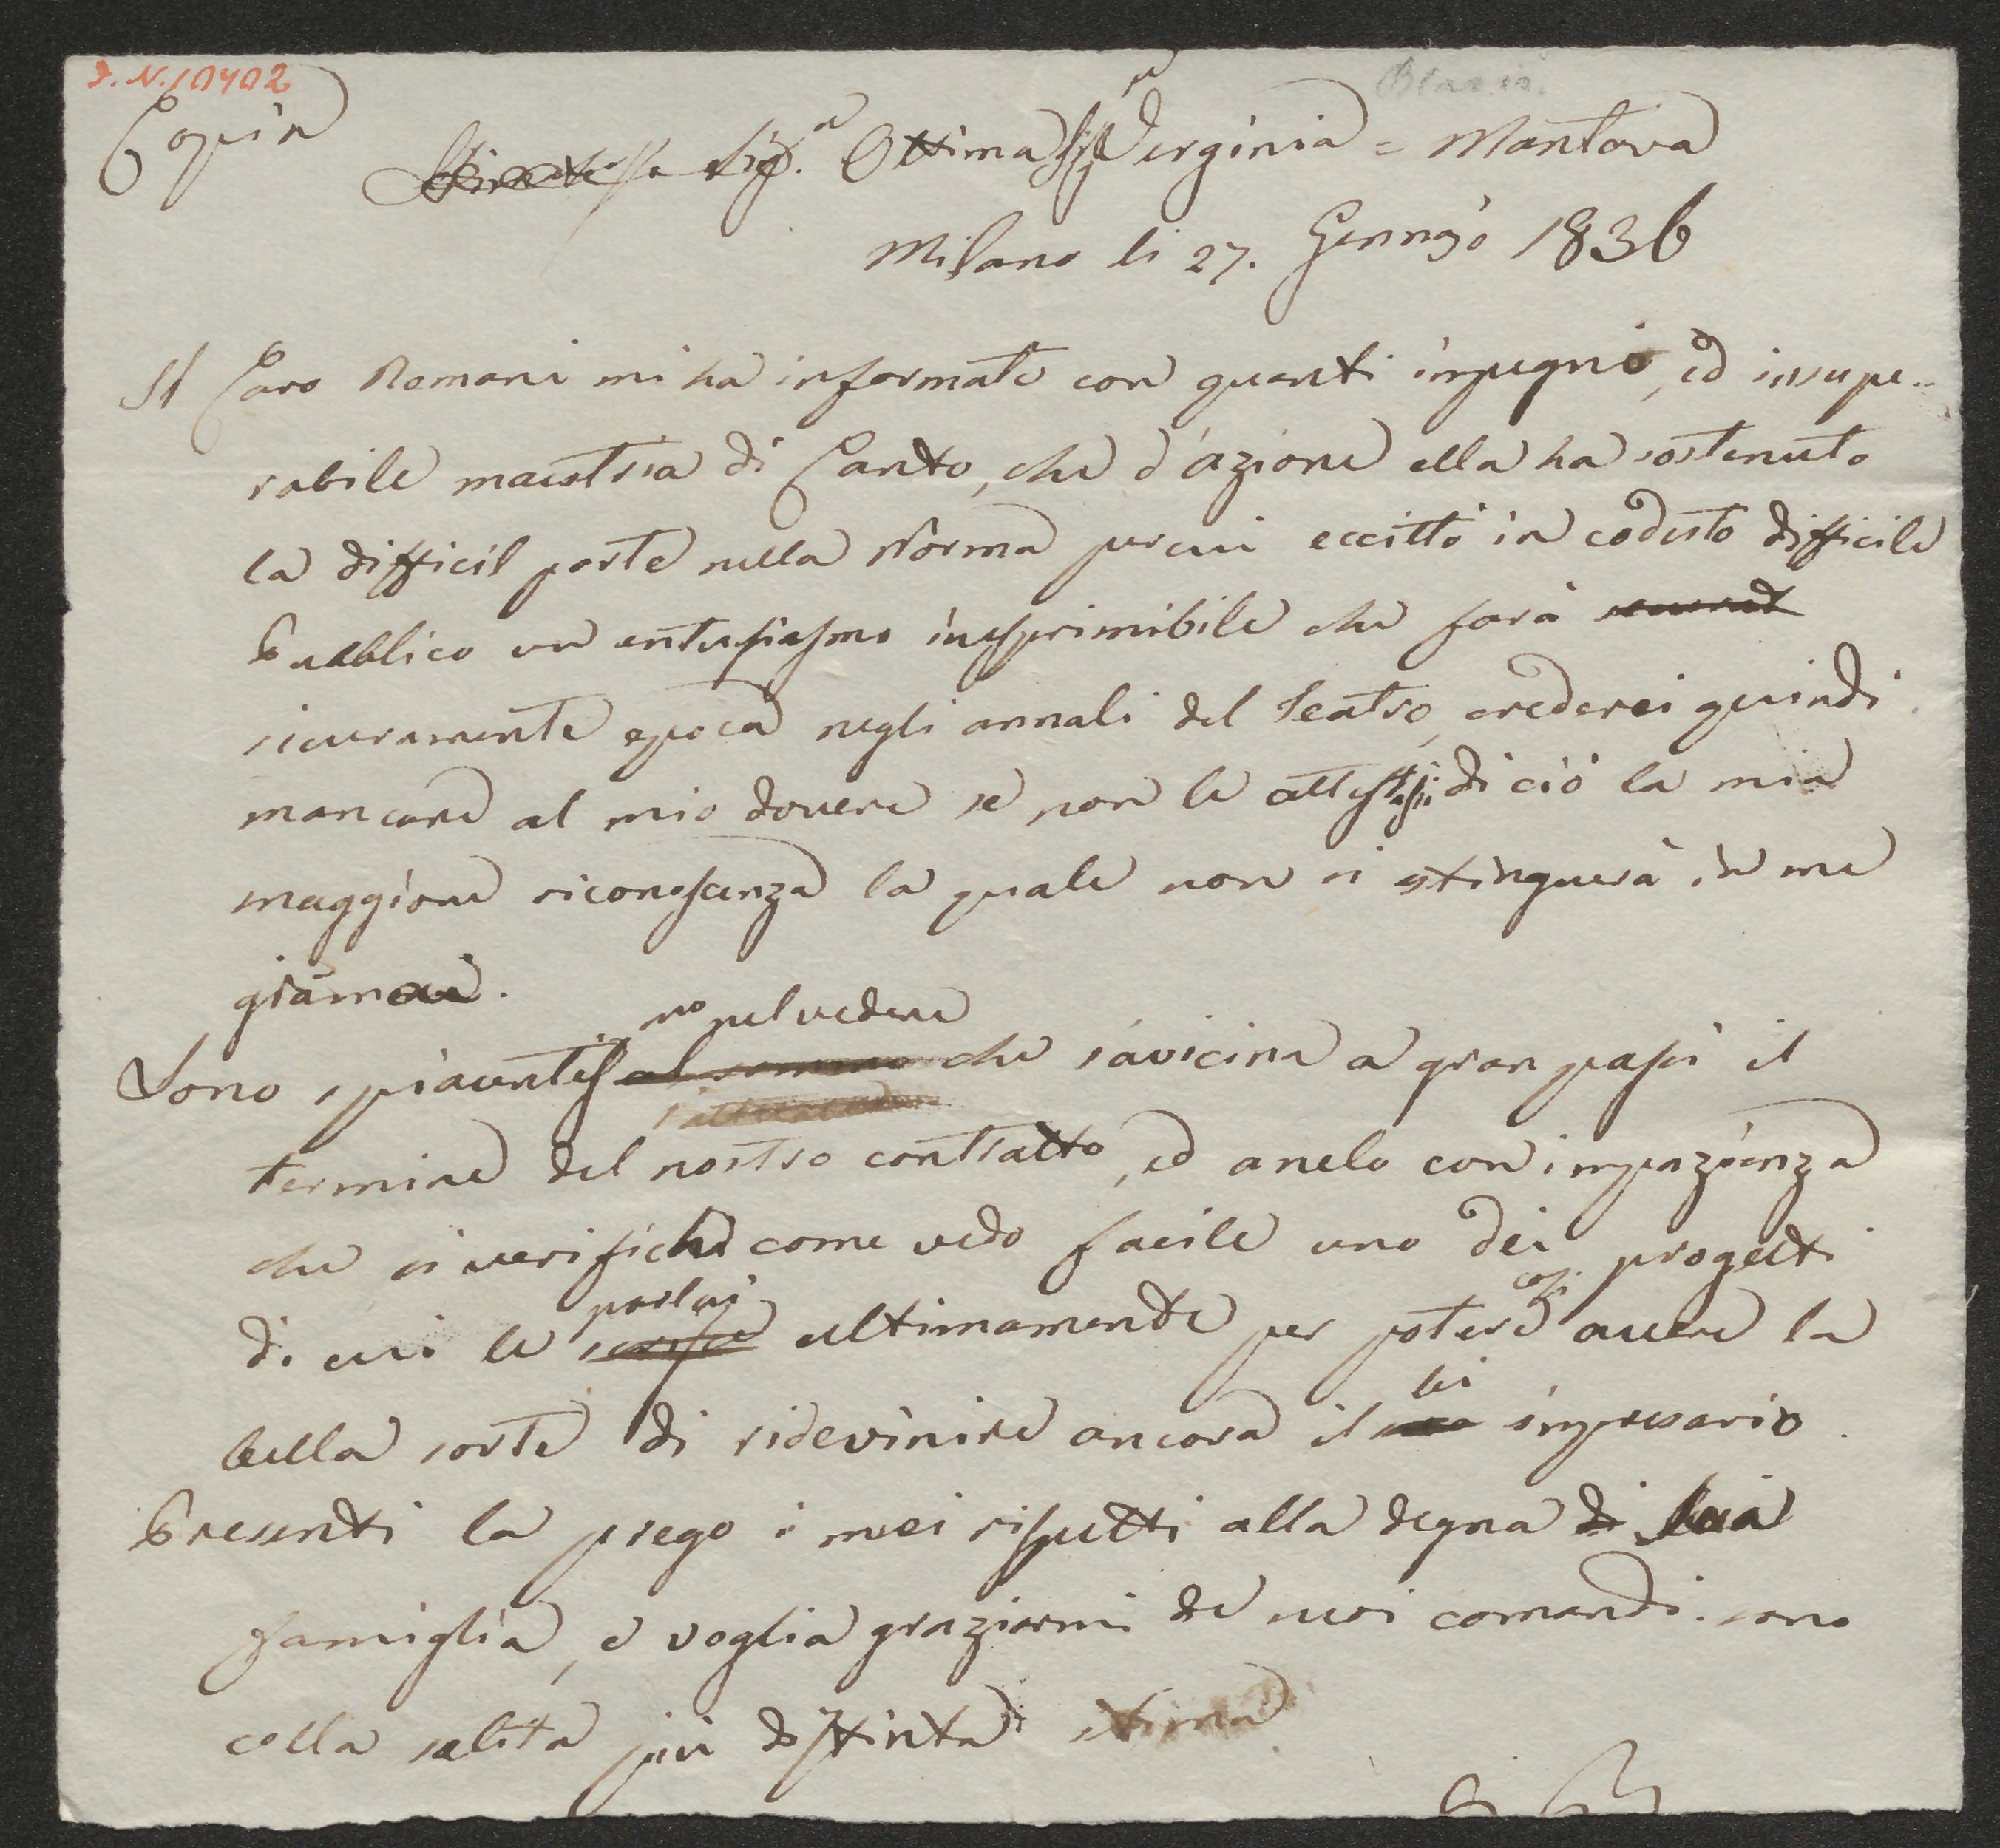 J. N. 10402
Blasis.
Copia
Stimatissa Sig.a Ottima Sig.a Verginia = Mantova
Milano li 27. Gennajo 1836
Il Caro Romani mi ha informato con quanti impegni, ed insupe-
rabile maestria di Canto, che d'azione ella ha sostenuto
la difficil parte nella Norma per cui eccittò in codesto difficile
Pubblico un entusiasmo inesprimibile che farà
sicuramente epoca negli annali del Teatro, crederei quindi
mancare al mio dovere se non le attestassi di ciò la mia
maggiore riconoscenza la quale non si stinguerà in me
giamai.
mo nel vedere
Sono spiacentiss al sommo che s'avicina a gran passi il
termine del nostro contratto, ed anelo con impazienza
che si verifichi come vedo facile uno dei progetti
parlai così
di cui le scrissi ultimamente per potere avere la
lei
bella sorte di ridevinire ancora il suo impresario.
Presenti la prego i miei rispetti alla degna di lei
famiglia, e voglia graziarmi de suoi comandi. sono
colla solita più distinta stima